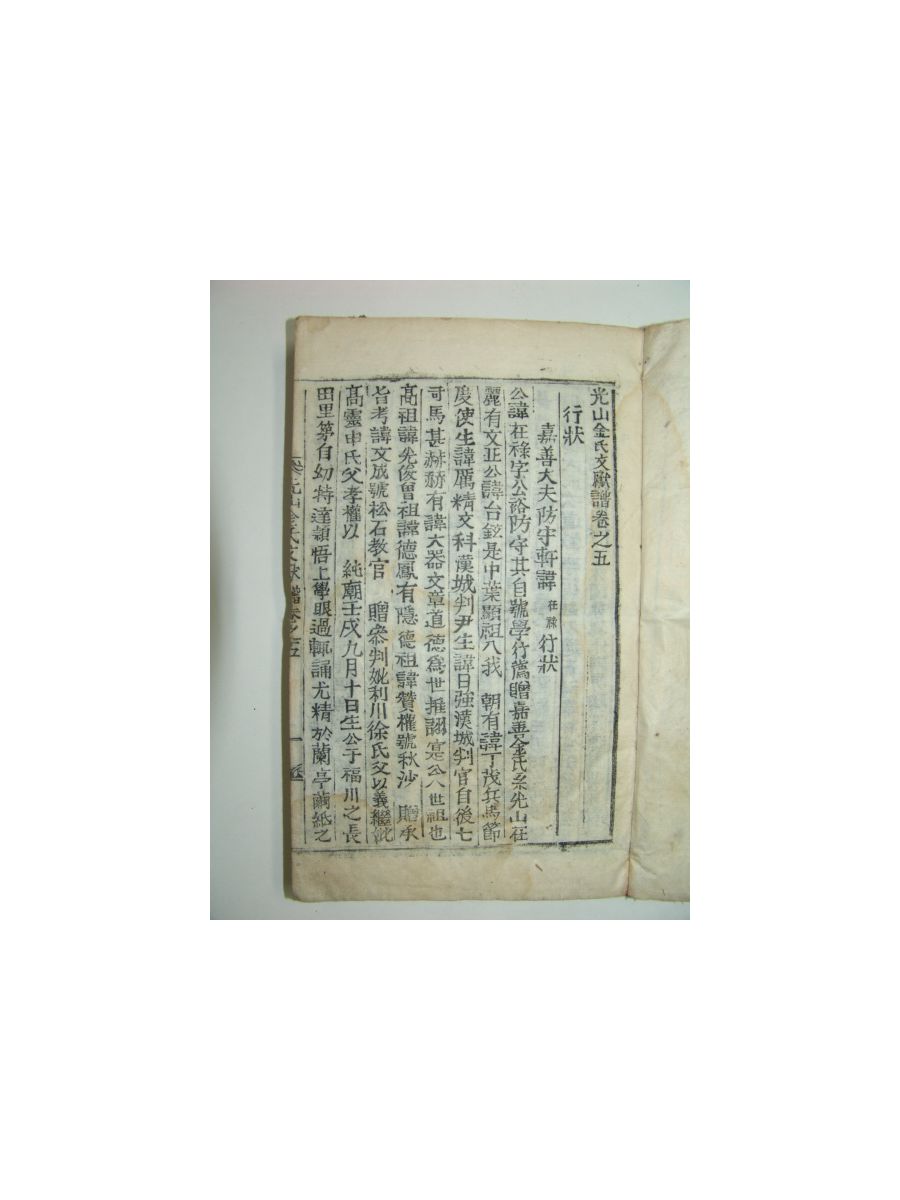 光山金氏文獻譜卷之五
行狀
嘉善大夫防守軒諱在祿行狀
公諱在祿字公裕防守其自號學行薦贈嘉善金氏系光山在
麗有文正公諱台鉉是中葉顯祖入我 朝有諱丁茂兵馬節
度使生諱厲精文科漢城判尹生諱日強漢城判官自後七
司馬甚赫赫有諱大器文章道德爲世推詡寔公八世祖也
高祖諱光俊曾祖諱德鳳有隱德祖諱贊權號秋沙 贈承
旨考諱文成號松石教官 贈參判妣利川徐氏父以義繼妣
高靈申氏父孝權以 純廟壬戌九月十日生公于福川之長
田里第自幼特達穎悟上學眼過輒誦尤精於蘭亭繭紙之
光山金氏文獻譜卷之五 一